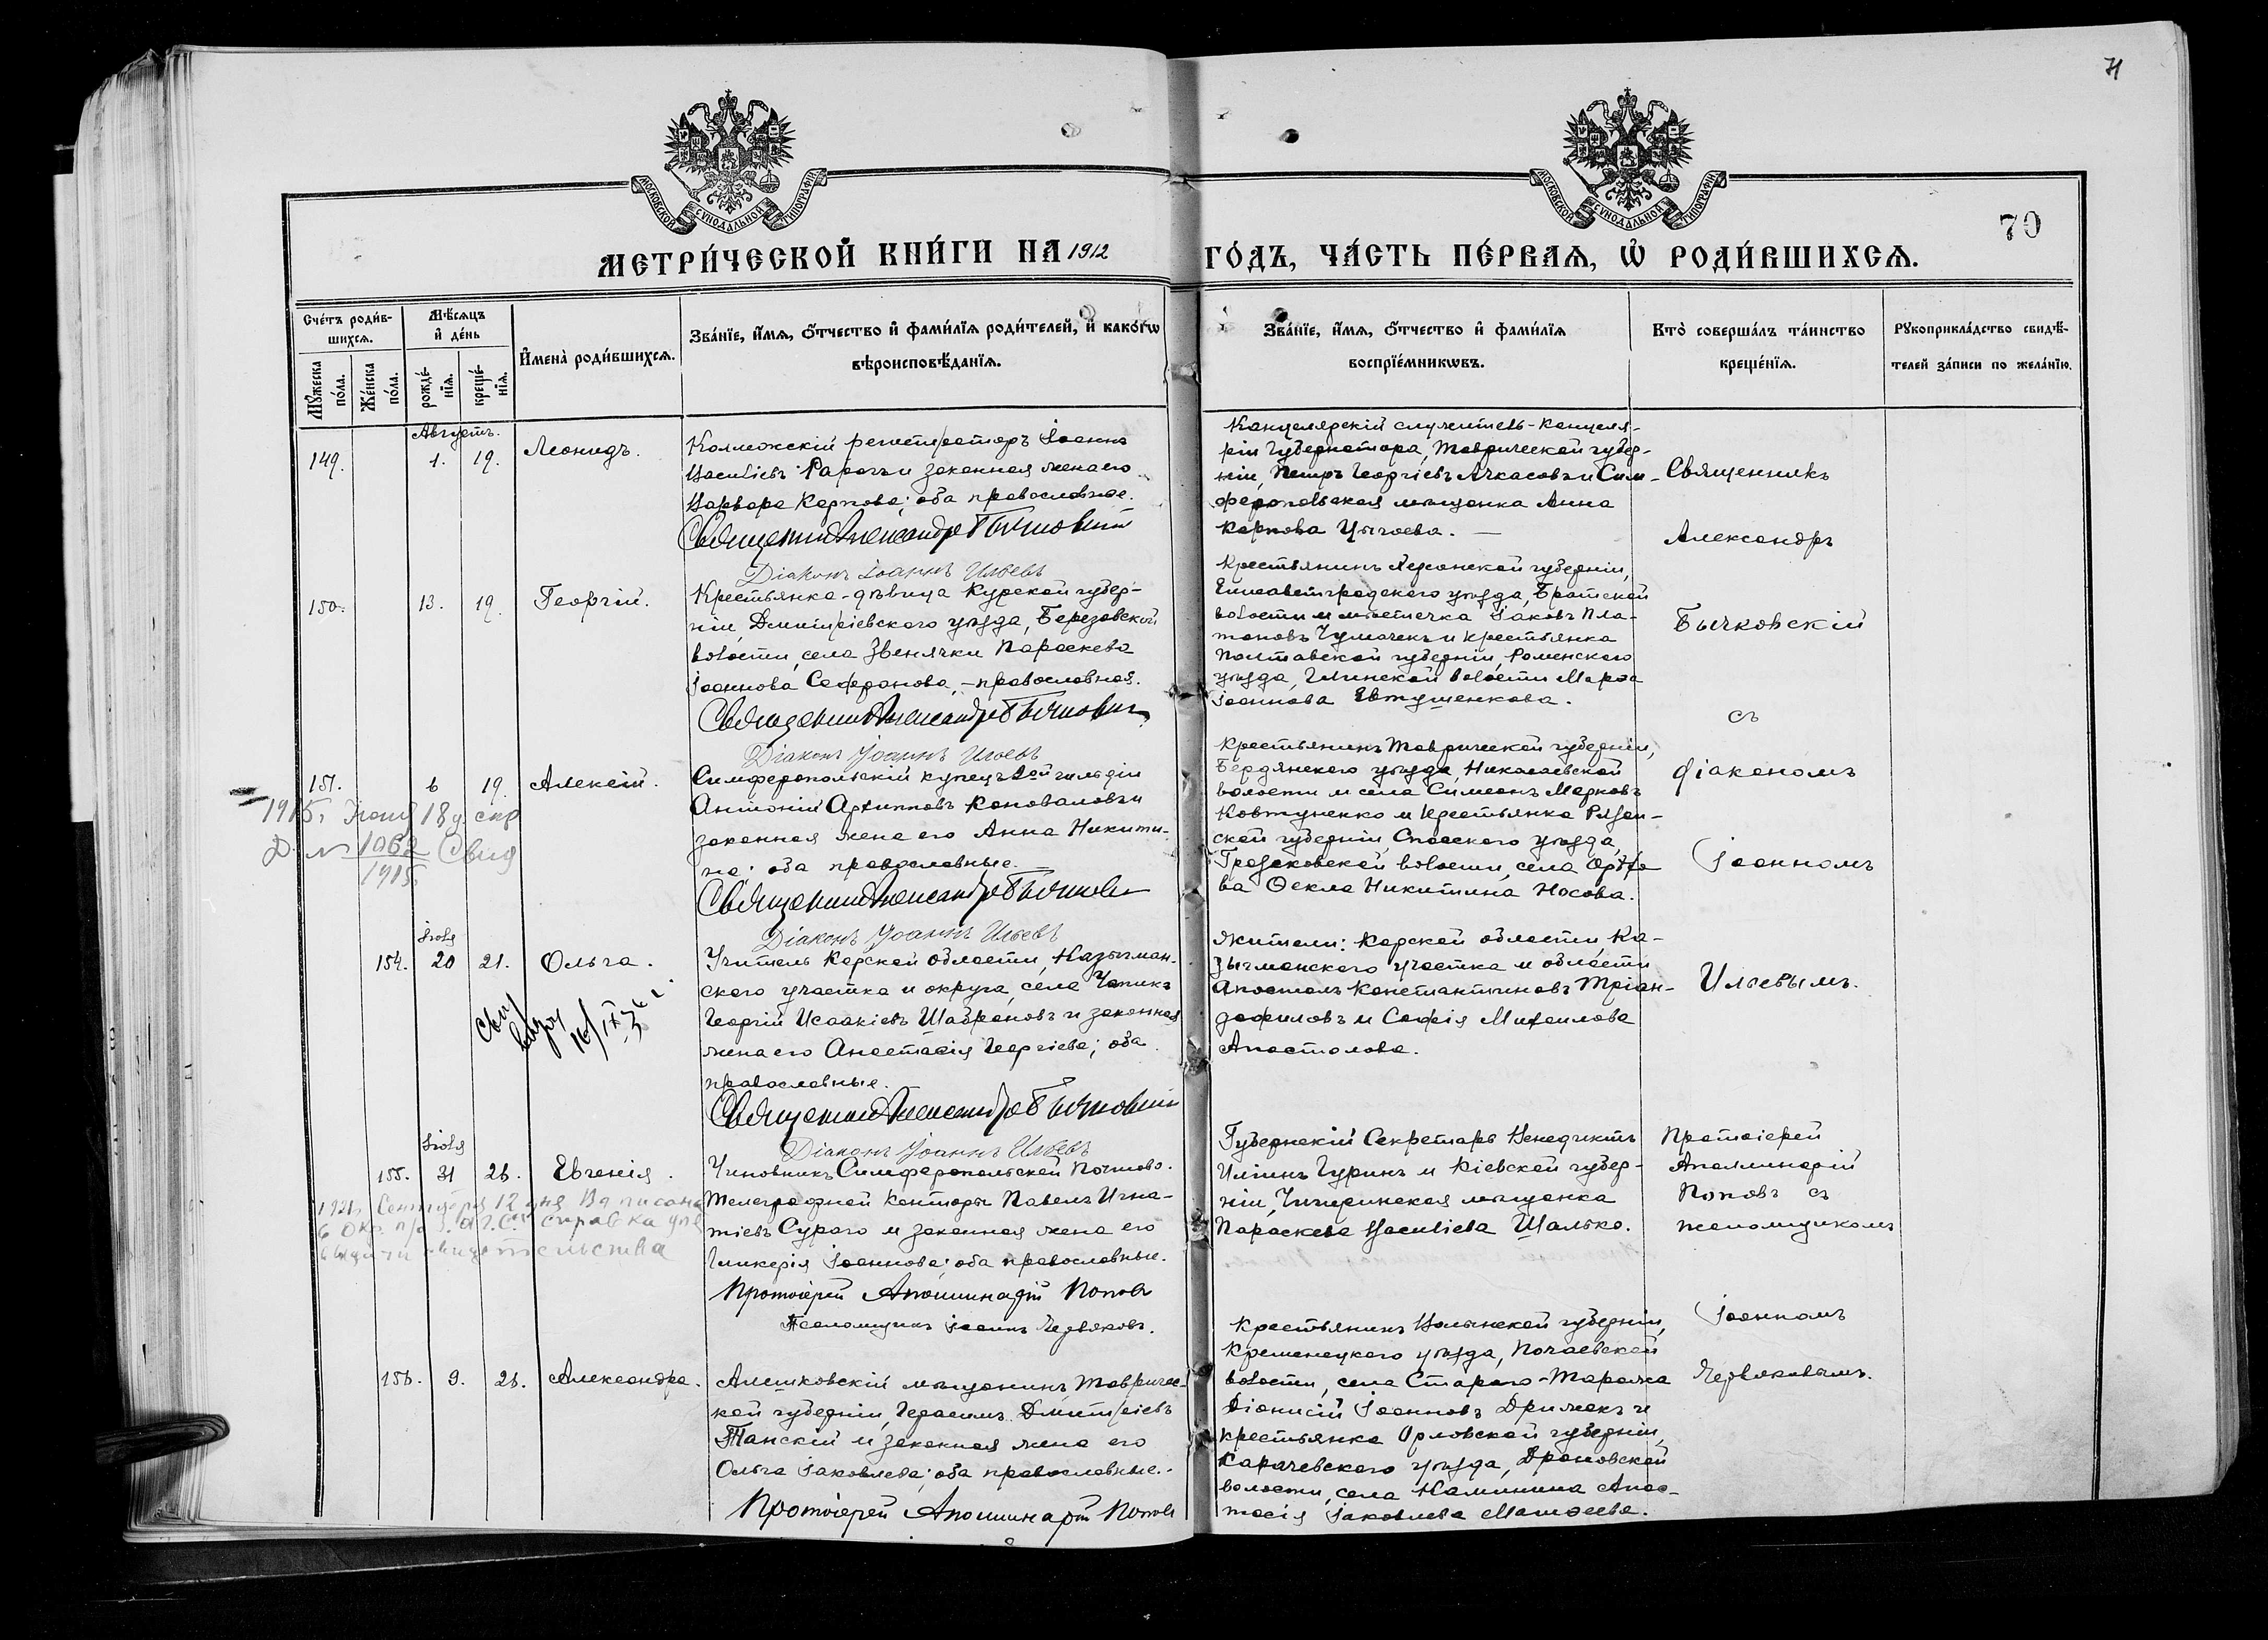 71
МОСКОВСКОЙ СѴНОДАЛЬНОЙ ТИПОГРАФІИ
МОСКОВСКОЙ СѴНОДАЛЬНОЙ ТИПОГРАФІИ
70
МЕТРИ́ЧЕСКОЙ КНИ́ГИ НА 1912 ГО́ДЪ, ЧА́СТЬ ПЕ́РВАѦ, Ѡ҆ РОДИ́ВШИХСѦ.
Сче́тъ роди́в-
шихсѧ.
Мꙋ́жеска по́ла.
Же́нска по́ла.
Мѣ́сѧцъ
и҆ де́нь
рожде́-
нїѧ.
креще́-
нїѧ.
И҆мена̀ роди́вшихсѧ.
Зва́нїе, и҆́мѧ, ѻ҆́тчество и҆ фами́лїѧ роди́телей, и҆ како́гѡ
вѣроисповѣ́данїѧ.
Зва́нїе, и҆́мѧ, ѻ҆́тчество и҆ фами́лїѧ
воспрїе́мникѡвъ.
Кто̀ соверша́лъ та́инство
креще́нїѧ.
Рꙋкоприкла́дство свидѣ́-
телей за́писи по жела́нїю.
Августъ.
149.
1.
19.
Леонидъ.
Коллежскій регистраторъ Іоаннъ
Василіевъ и законная жена его
Варвара Карпова; оба православные.
Священникъ Александръ Бычковскій
Діаконъ Іоаннъ Ильевъ
Канцелярскій служитель Канцеля-
ріи Губернатора, Таврической губер-
ніи, Петръ Георгіевъ Ачкасовъ и Сим-
феропольская мѣщанка Анна
Карпова
Священникъ
Александръ
Бычковскій
съ
діакономъ
Іоанномъ
Ильевымъ.
150.
13.
19.
Георгій.
Крестьянка-дѣвица Курской губер-
ніи, Дмитріевского уѣзда, Березовской
волости, села Звенячки Параскева
Іоаннова Сафронова, - православная.
Священникъ Александръ Бычковскій
Діаконъ Іоаннъ Ильевъ
Крестьянинъ Херсонской губерніи,
Елисаветградского уѣзда, Братской
волости и мѣстечка Іаковъ Пла-
тоновъ Чумачекъ и крестьянка
Полтавской губерніи, Роменского
уѣзда, волости Марѳа
Іоаннова Евтушенкова.
151.
6
19.
Алексій.
Симферопольскій купецъ 2ой гильдіи
Антоній Архипповъ Коноваловъ и
законная жена его Анна Никити-
на; оба православные.
Священникъ Александръ Бычковскій
Діаконъ Іоаннъ Ильевъ
Крестьянинъ Таврической губерніи,
Бердянского уѣзда, Николаевской
волости и села Симеонъ Марковъ
Ковтуненко и крестьянка Рязан-
ской губерніи, Спасского уѣзда,
волости, села
Ѳекла Никитина Носова.
1915.
18
№ 1062
1915
Іюля
154.
20
21.
Ольга.
Учитель Карской области, Кагызман-
ского участка и округа, села
Георгій Исаакіевъ и законная
жена его Анастасія Георгіева; оба
православные.
Священникъ Александръ Бычковскій
Діаконъ Іоаннъ Ильевъ
Жители: Карской области, Ка-
гызманского участка и области
Апостолъ Константиновъ Тріан-
дафиловъ и Софія Михаилова
Апостолова.
Іюля
155.
31
26.
Евгенія.
Чиновникъ Симферопольской Почтово-
телеграфной конторы Павелъ Игна-
тіевъ Сураго и законная жена его
Гликерія Іоаннова; оба православные.
Протоіерей Аполлинарій Поповъ
Псаломщикъ Іоаннъ Червяковъ.
Губернскій Секретарь Венедиктъ
Иліинъ Гуринъ и Кіевской губер-
ніи, Чигиринская мѣщанка
Параскева Василіева Шалько.
Протоіерей
Аполлинарій
Поповъ съ
псаломщикомъ
Іоанномъ
Червяковымъ.
Сентября 12 дня
справка
выдачи свидетельства
156.
9.
26.
Александра.
Алешковскій мѣщанинъ, Тавричес-
кой губерніи, Герасимъ Дмитріевъ
Танскій и законная жена его
Ольга Іаковлева; оба православные.
Протоіерей Аполлинарій Поповъ
Крестьянинъ Волынской губерніи,
Кременецкого уѣзда, Почаевской
волости, села Старого-Таража
Діонисій Іоанновъ и
крестьянка Орловской губерніи,
Карачевского уѣзда, Дроновской
волости, села Анас-
тасія Іаковлева Матѳеева.